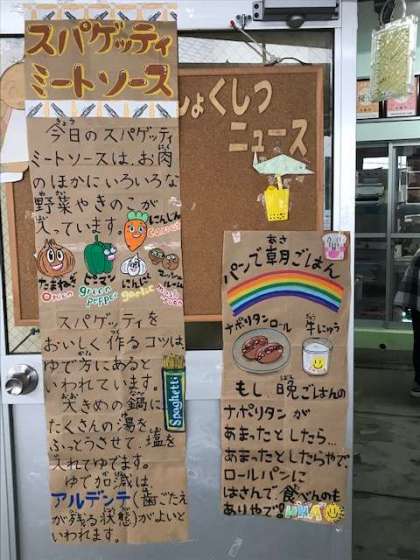 スパゲッティ
ミートソース
今日のスパゲッティ
ミートソースは、お肉
のほかにいろいろな
野菜やきのこが
入っています。
にんじん
carrot
たまねぎ
onion
ピーマン
green
pepper
にんにく
garlic
マッシュルーム
スパゲッティを
おいしく作るコツは、
ゆで方にあると
いわれています。
大きめの鍋に
たくさんの湯を
ふっとうさせて、塩を
入れてゆでます。
ゆで加減は
アルデンテ(歯ごたえ
が残る状態)がよいと
いわれます。
Spaghetti
しょくしつ
ニュース
パンで朝ごはん
あさ
ナポリタンロール
牛にゅう
もし晩ごはんの
ナポリタンが
あまったとしたら…
あまったとしたらやで、
ロールパンに
はさんで、食べんのも
ありやで!